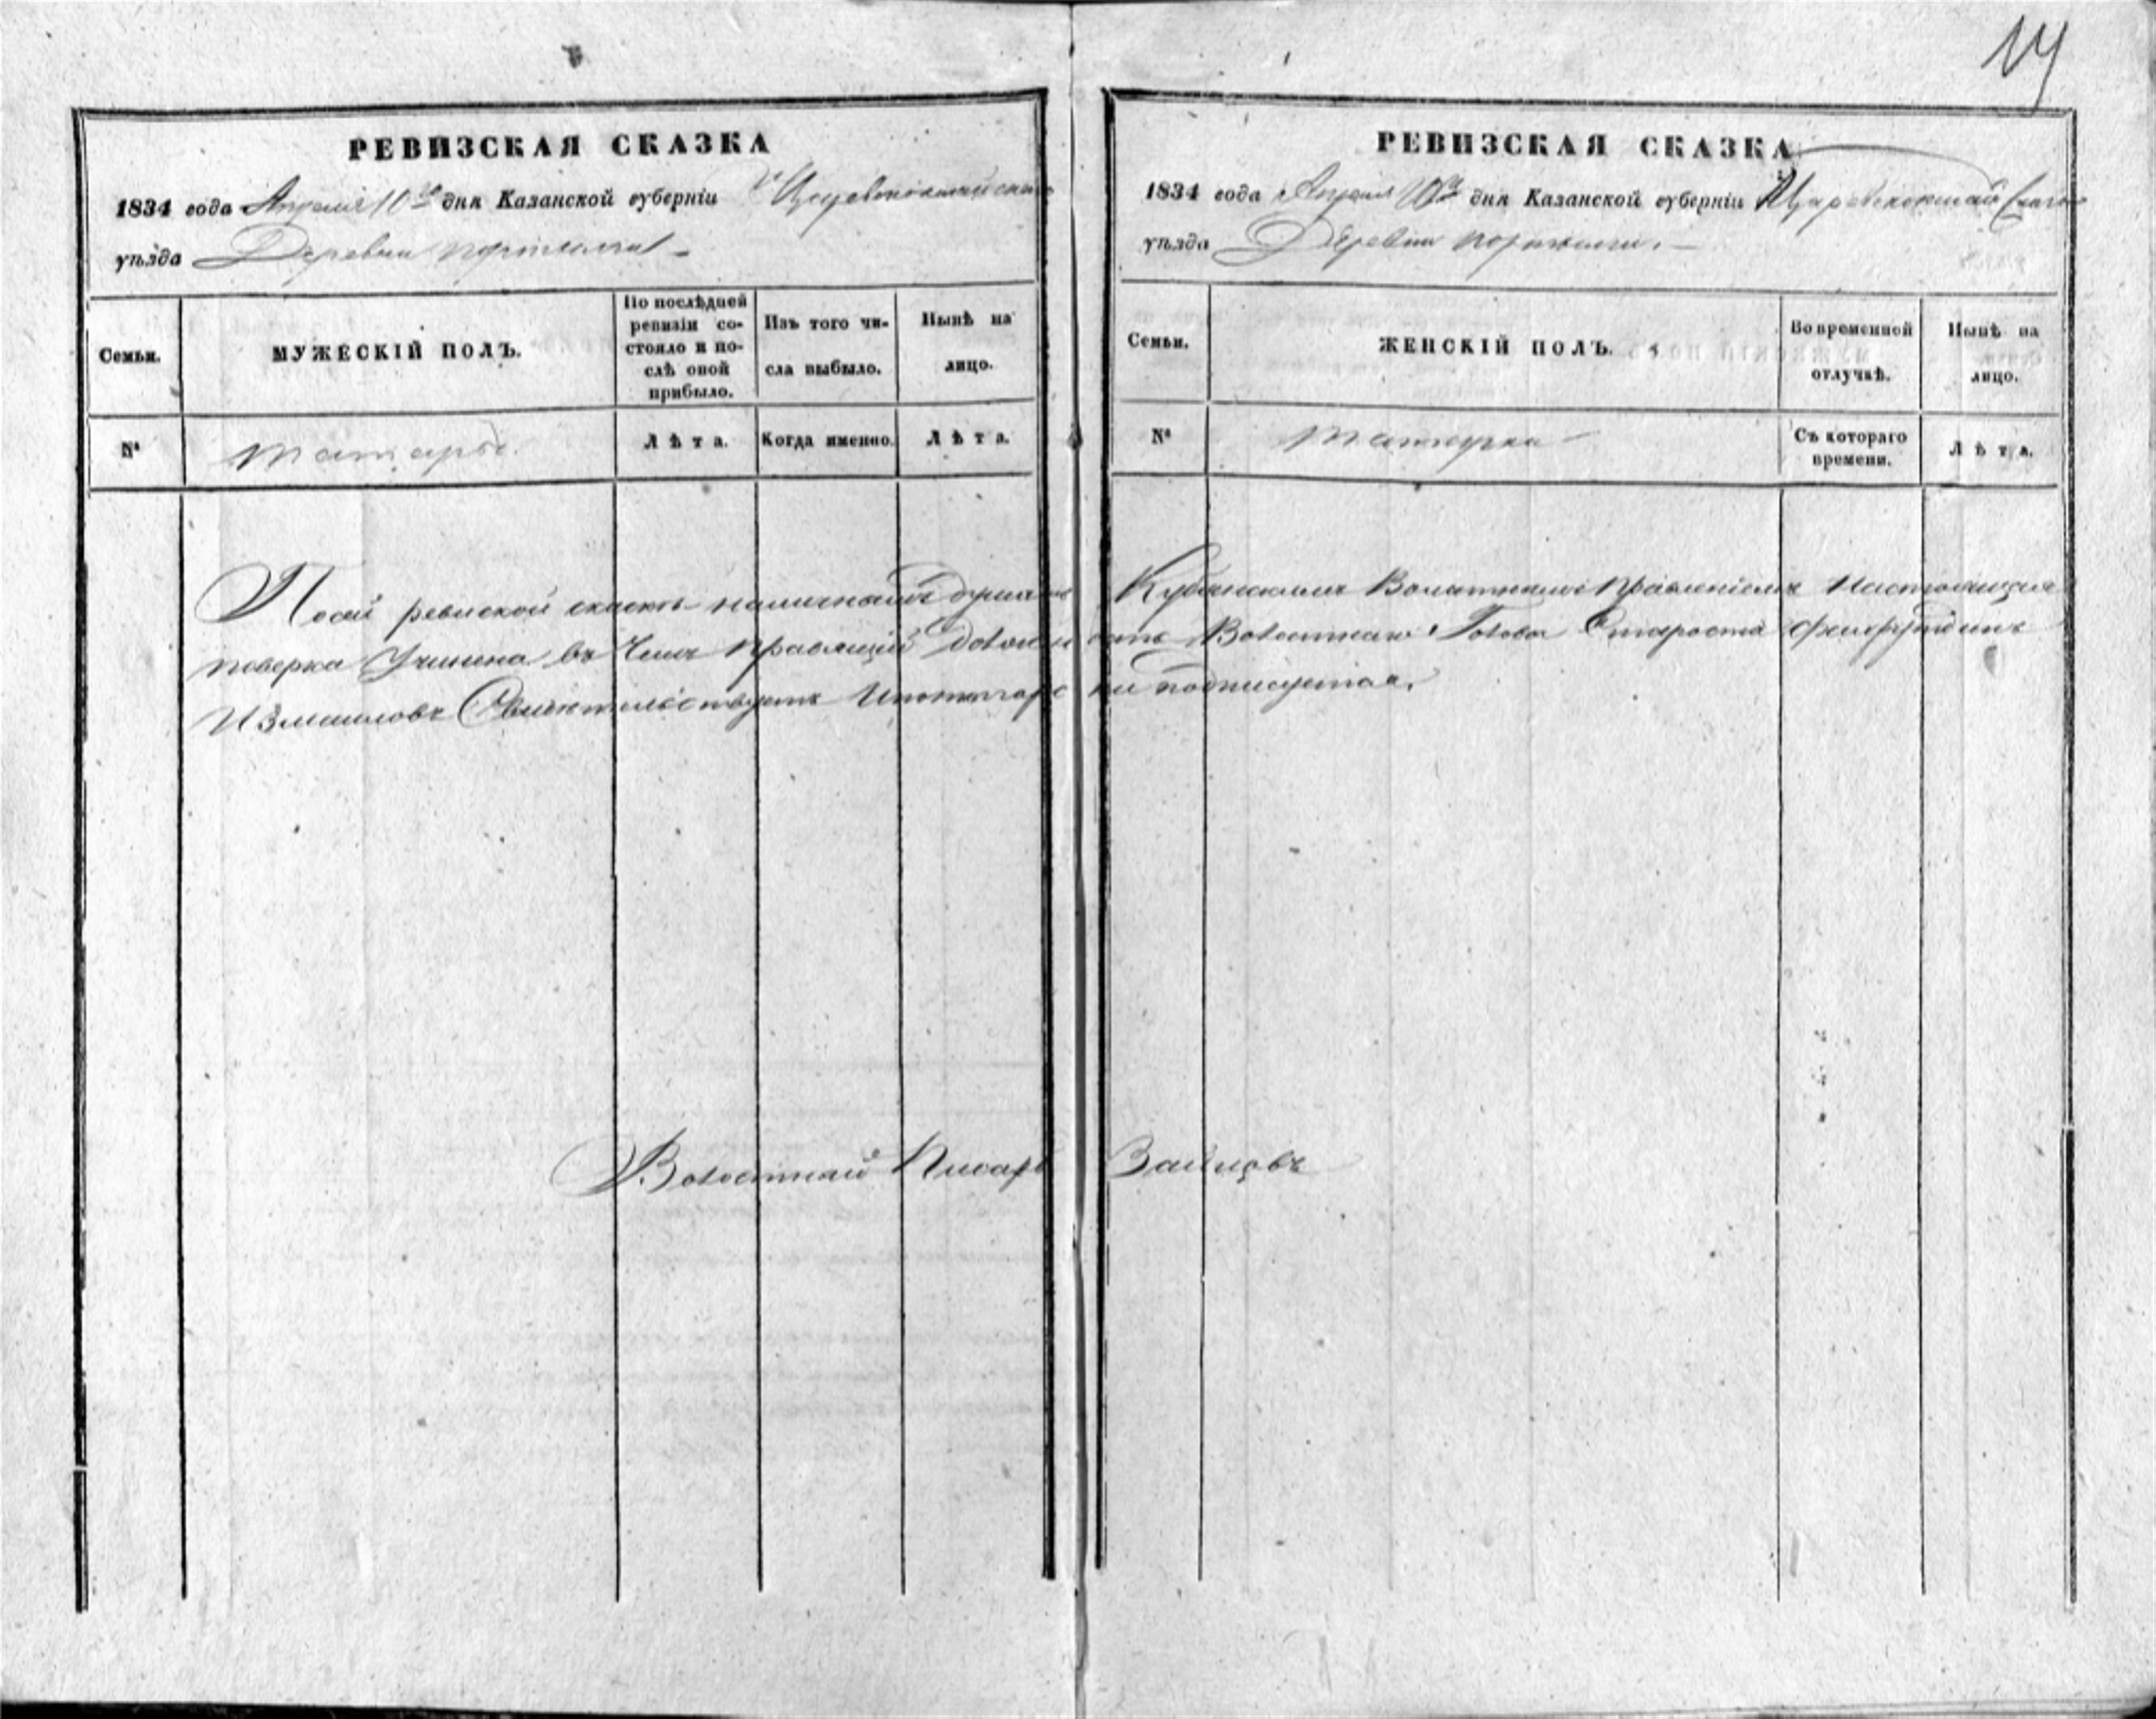 14
РЕВИЗСКАЯ СКАЗКА
1834 года Апреля 10го дня Казанской губерніи Царевококшайскаго
уѣзда Деревни
Семьи.
МУЖЕСКІЙ ПОЛЪ.
По послѣдней ревизіи со-стояло и по-слѣ оной прибыло.
Изъ того чи-сла выбыло.
Нынѣ на лицо.
№
Татаръ
Лѣта.
Когда именно.
Лѣта.
РЕВИЗСКАЯ СКАЗКА
1834 года Апреля 10го дня Казанской губерніи Царевококшайскаго
уѣзда Деревни
Семьи.
ЖЕНСКІЙ ПОЛЪ.
Во временной отлучкѣ.
Нынѣ на лицо.
№
Съ котораго времени.
Лѣта.
По сей ревиской скаске наличнымъ душамъ Волостнымъ Правленіемъ Настоящая
поверка Учинена въ чемъ правящій должность Волостнаго Головы Староста
Измаиловъ Свидѣтельствуетъ подписуется.
Волостной Писарь Зайцовъ